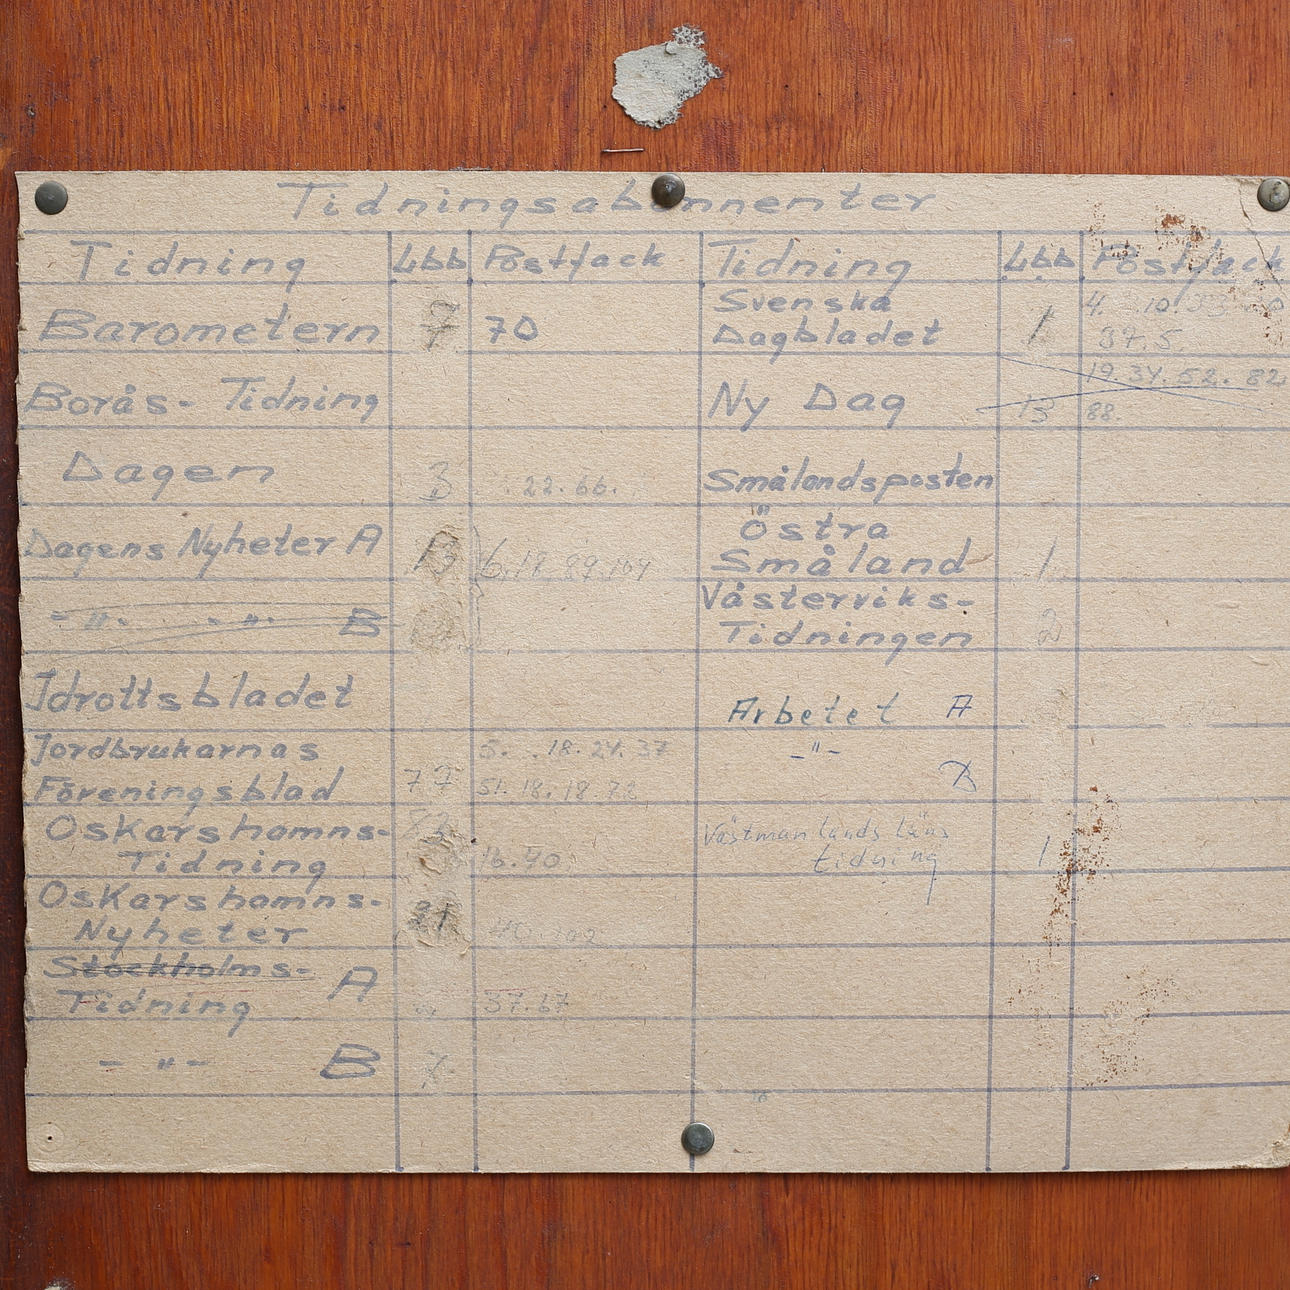 Tidningsabonnenter
Tidning Lbb Postfack Tidning Lbb Postfack
Barometern 7 70
Svenska
Dagbladet 1 37.5.
Borås- Tidning
19.34.52.82
Ny Dag 13 88.
Dagen 3 22.66.
Smålandsposten
Dagens Nyheter A 13 6.18.89.104
Östra
Småland 1
-"- -"- B
Västerviks-
Tidningen 2
Idrottsbladet
Arbetet A
Jordbrukarnas 5. 18.24.37
Föreningsblad 51.18.18.72
-"-
Oskarshamns-
Tidning 16.40
Västmanlands läns
tidning 1
Oskarshamns-
Nyheter
Stockholms-
Tidning A 37.67
-"- B